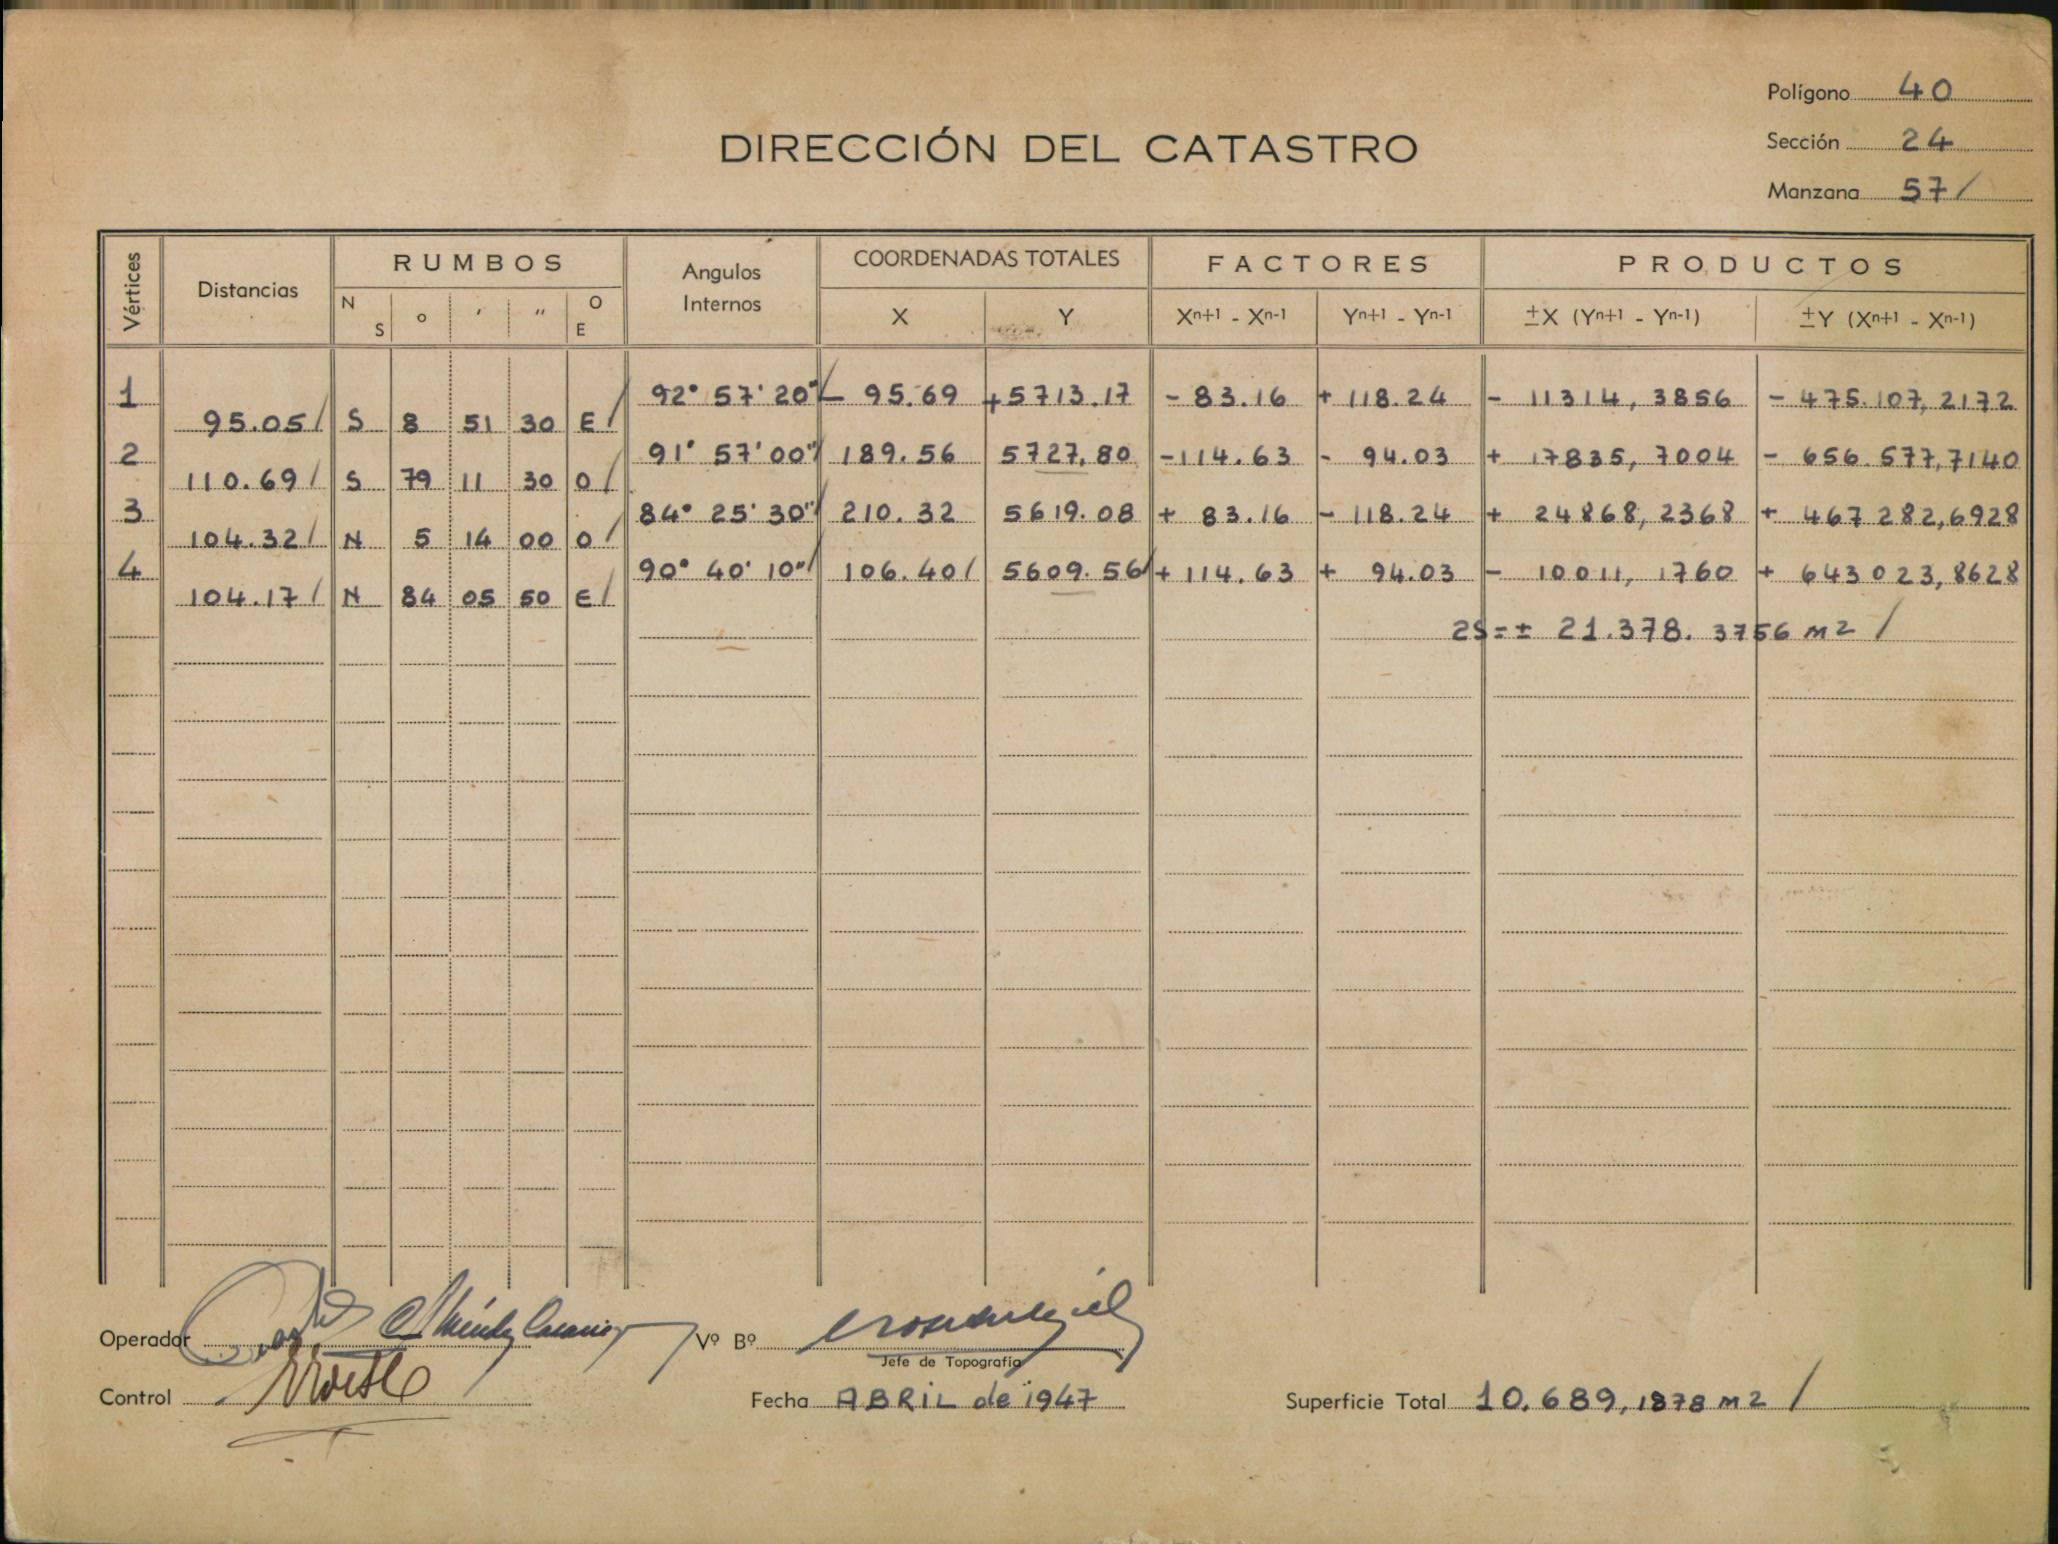 Polígono 40
DIRECCIÓN DEL CATASTRO
Sección 24
Manzana 57/
Vértices Distancias RUMBOS Angulos Internos COORDENADAS TOTALES FACTORES PRODUCTOS
N S o ′ ″ O E X Y Xn+1 - Xn-1 Yn+1 - Yn-1 ±X (Yn+1 - Yn-1) ±Y (Xn+1 - Xn-1)
1 92° 57' 20"/ - 95.69 +5713.17 - 83.16 + 118.24 - 11314,3856 - 475.107,2172
95.05/ S 8 51 30 E/
2 91° 57' 00"/ 189.56 5727.80 -114.63 - 94.03 + 17835,7004 - 656.577,7140
110.69/ S 79 11 30 O/
3 84° 25' 30"/ 210.32 5619.08 + 83.16 - 118.24 + 24868,2368 + 467 282,6928
104.32/ N 5 14 00 O/
4 90° 40' 10"/ 106.40/ 5609.56/ + 114.63 + 94.03 - 10011,1760 + 643 023,8628
104.17/ N 84 05 50 E/
2S=± 21.378.3756 m2 /
Operador Vº Bº
Jefe de Topografía
Control Fecha ABRIL de 1947 Superficie Total 10.689,1878 m2 /